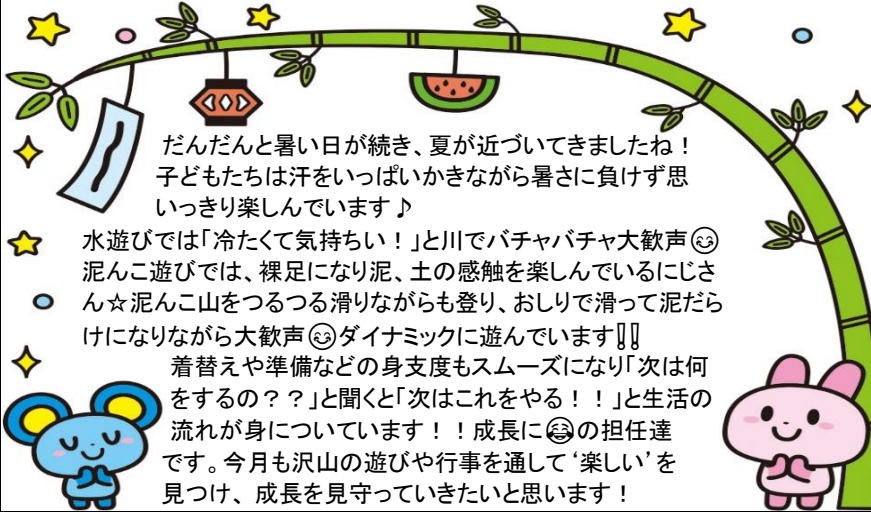 だんだんと暑い日が続き、夏が近づいてきましたね！
子どもたちは汗をいっぱいかきながら暑さに負けず思
いっきり楽しんでいます♪
水遊びでは「冷たくて気持ちい！」と川でバチャバチャ大歓声😊
泥んこ遊びでは、裸足になり泥、土の感触を楽しんでいるにじさ
ん☆泥んこ山をつるつる滑りながらも登り、おしりで滑って泥だら
けになりながら大歓声😊ダイナミックに遊んでいます‼
着替えや準備などの身支度もスムーズになり「次は何
をするの？？」と聞くと「次はこれをやる！！」と生活の
流れが身についています！！成長に😂の担任達
です。今月も沢山の遊びや行事を通して‘楽しい’を
見つけ、成長を見守っていきたいと思います！